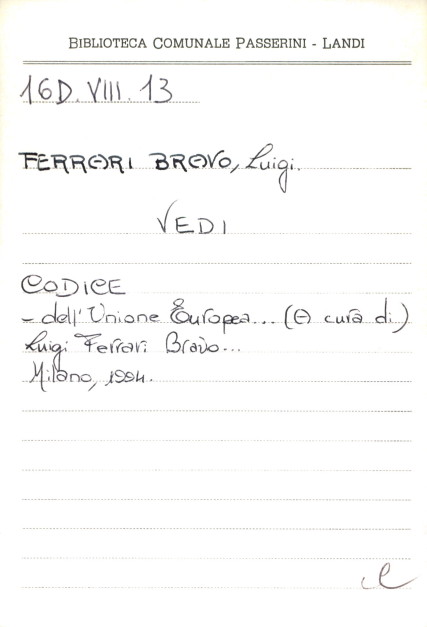 BIBLIOTECA COMUNALE PASSERINI - LANDI
16D. VIII. 13
FERRARI BRAVO, Luigi.
VEDI
CODICE
- dell'Unione Europea... (A cura di)
Luigi Ferrari Bravo...
Milano, 1994.